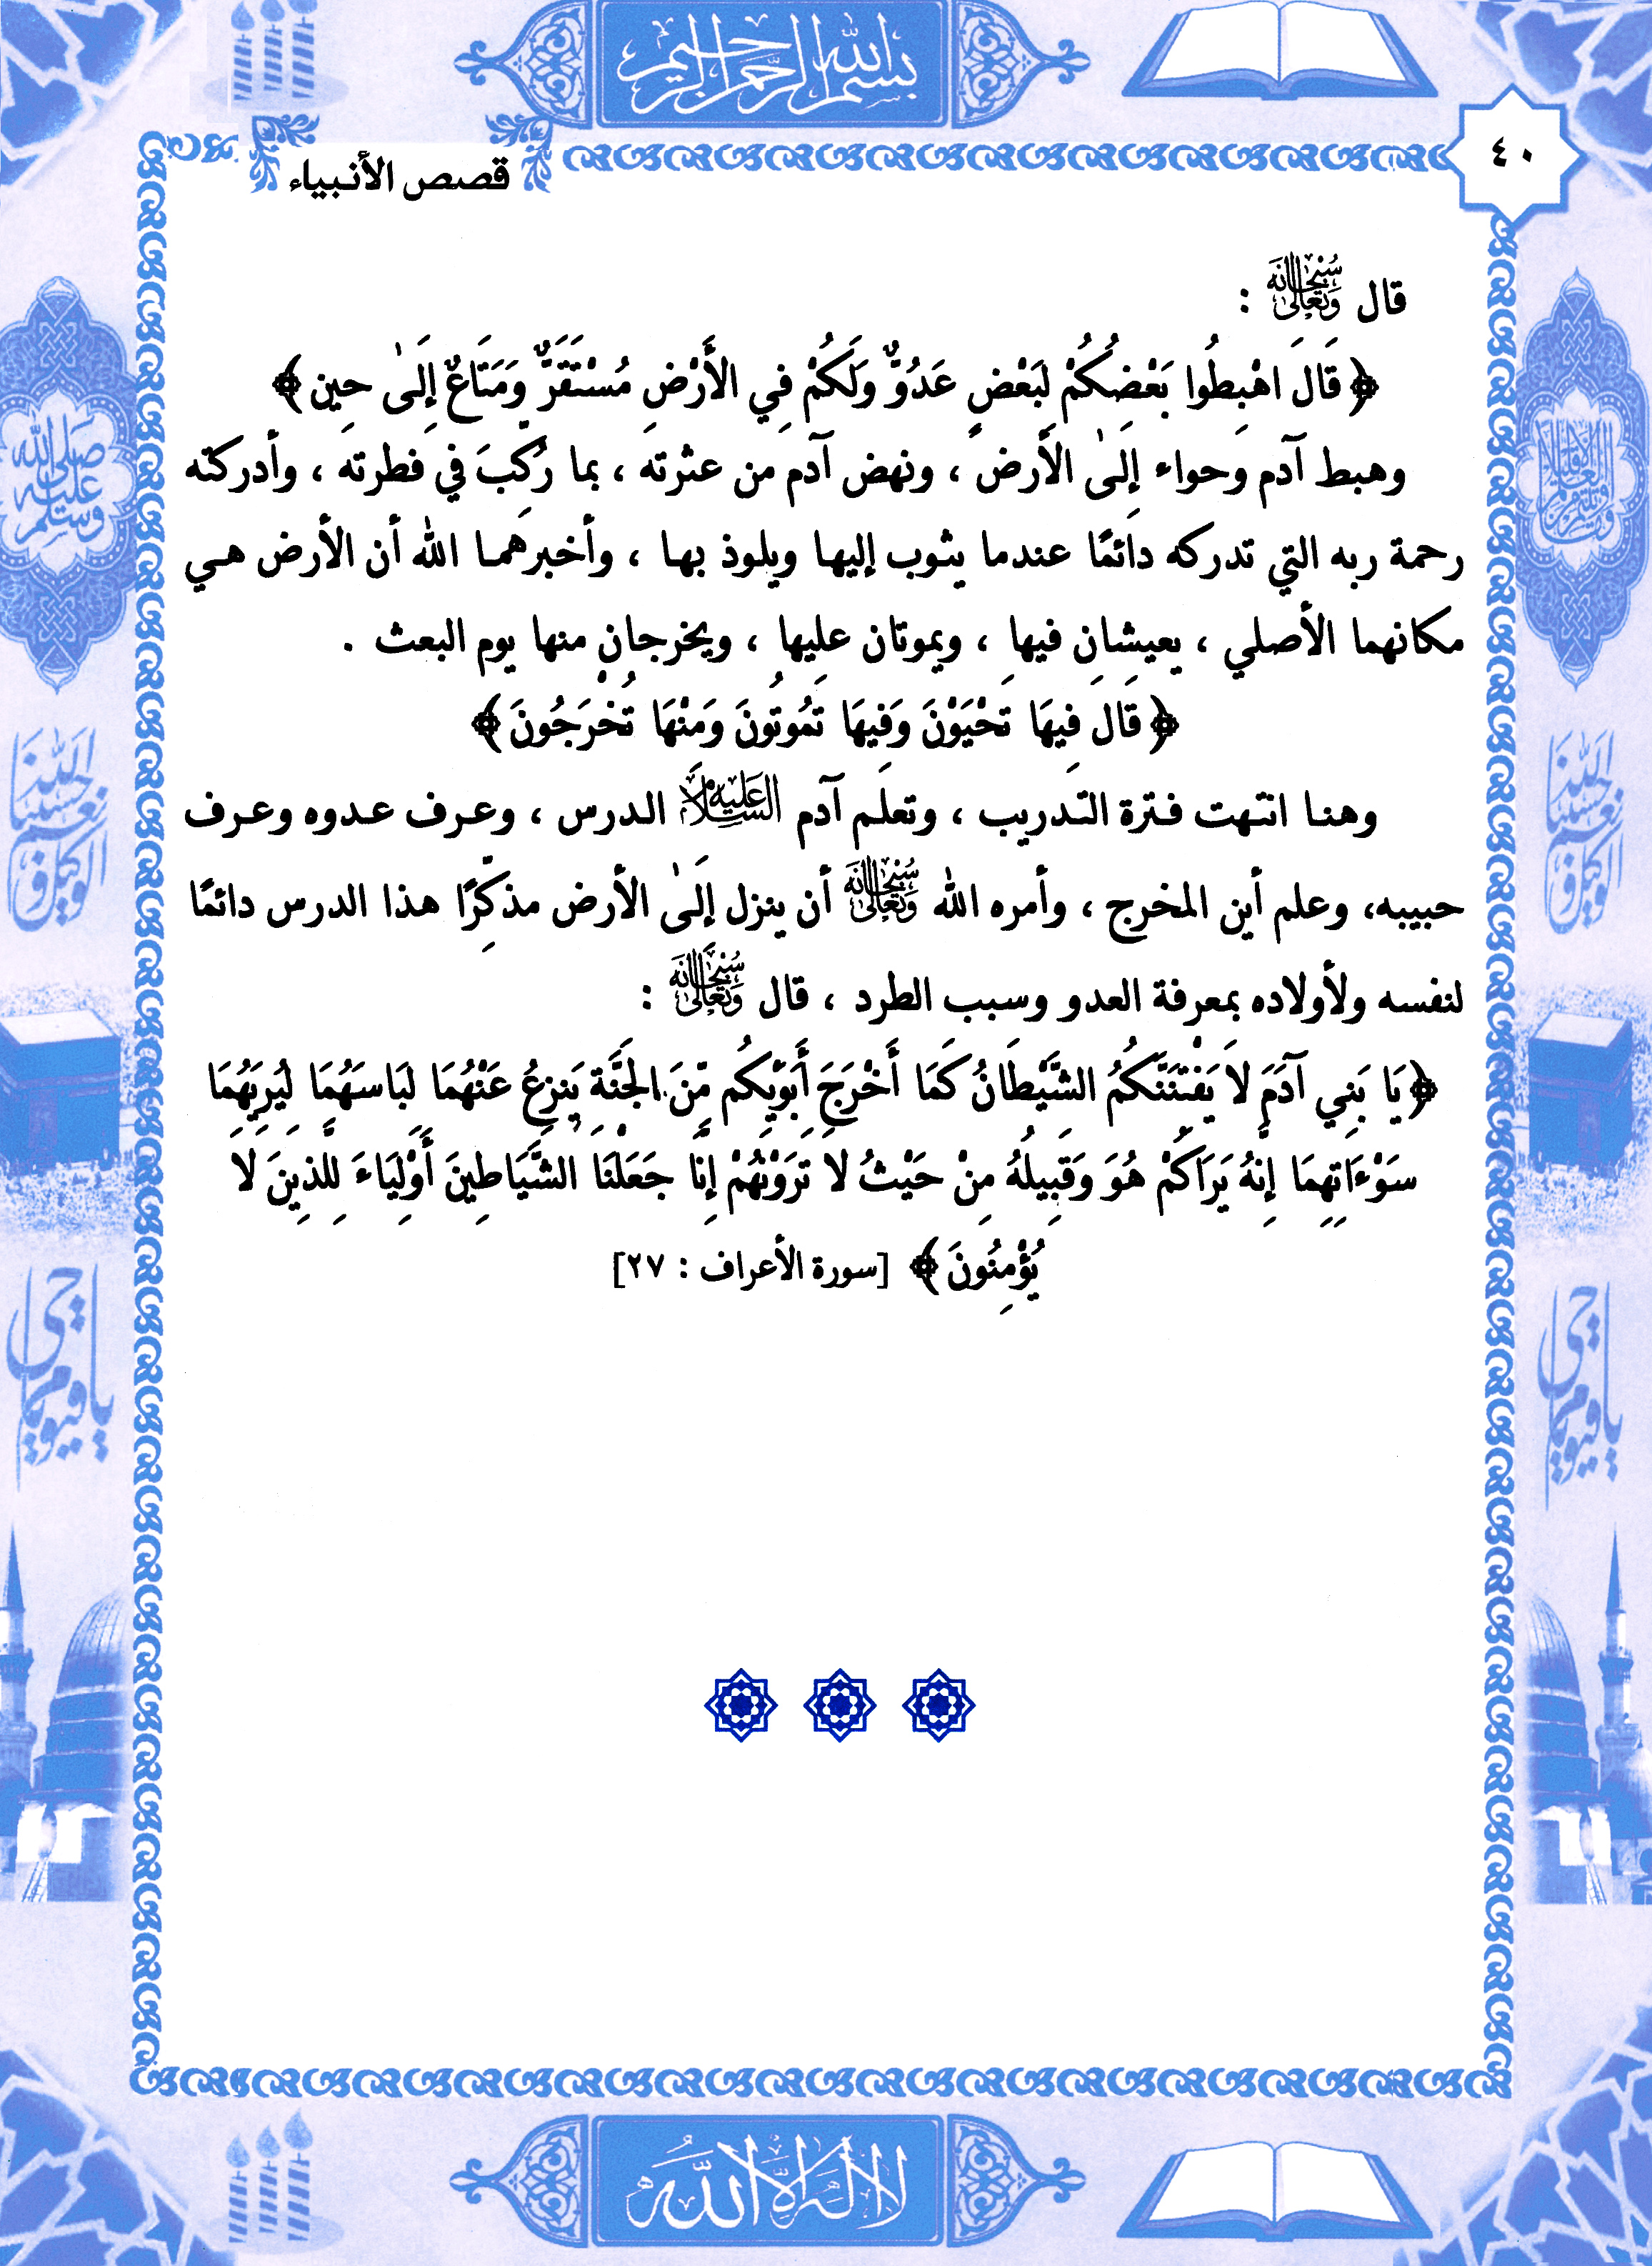 بسم الله الرحمن الرحيم
٤٠
قصص الأنبياء
قال سُبْحَانَهُ وَتَعَالَى :
﴿قَالَ اهْبِطُوا بَعْضُكُمْ لِبَعْضٍ عَدُوٌّ وَلَكُمْ فِي الأَرْضِ مُسْتَقَرٌّ وَمَتَاعٌ إِلَىٰ حِينٍ﴾
وهبط آدم وحواء إلىٰ الأرض ، ونهض آدم من عثرته ، بما رُكِّبَ في فطرته ، وأدركته
رحمة ربه التي تدركه دائمًا عندما يثوب إليها ويلوذ بها ، وأخبرهما الله أن الأرض هي
مكانهما الأصلي ، يعيشان فيها ، ويموتان عليها ، ويخرجان منها يوم البعث .
﴿قَالَ فِيهَا تَحْيَوْنَ وَفِيهَا تَمُوتُونَ وَمِنْهَا تُخْرَجُونَ﴾
وهنا انتهت فترة التدريب ، وتعلم آدم عَلَيْهِ السَّلَام الدرس ، وعرف عدوه وعرف
حبيبه، وعلم أين المخرج ، وأمره الله سُبْحَانَهُ وَتَعَالَى أن ينزل إلىٰ الأرض مذكِّرًا هذا الدرس دائمًا
لنفسه ولأولاده بمعرفة العدو وسبب الطرد ، قال سُبْحَانَهُ وَتَعَالَى :
﴿يَا بَنِي آدَمَ لَا يَفْتِنَنَّكُمُ الشَّيْطَانُ كَمَا أَخْرَجَ أَبَوَيْكُم مِّنَ الجَنَّةِ يَنزِعُ عَنْهُمَا لِبَاسَهُمَا لِيُرِيَهُمَا
سَوْءَاتِهِمَا إِنَّهُ يَرَاكُمْ هُوَ وَقَبِيلُهُ مِنْ حَيْثُ لَا تَرَوْنَهُمْ إِنَّا جَعَلْنَا الشَّيَاطِينَ أَوْلِيَاءَ لِلَّذِينَ لَا
يُؤْمِنُونَ﴾ [سورة الأعراف : ٢٧]
صلى الله عليه وسلم
حسبنا الله ونعم الوكيل
حسبنا الله ونعم الوكيل
يا حي يا قيوم
يا حي يا قيوم
لا إله إلا الله